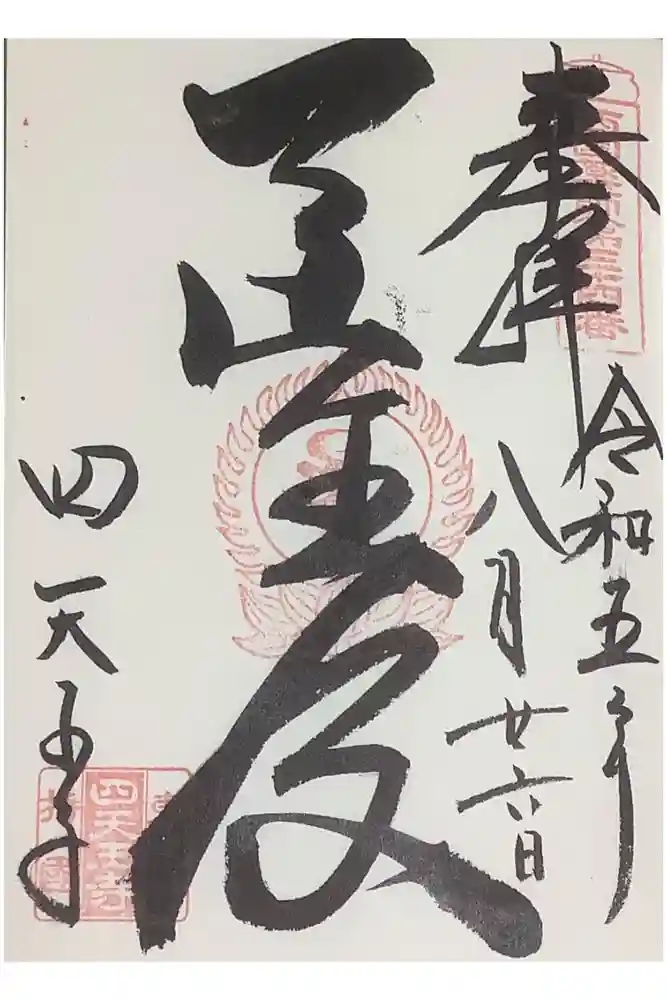 奉拝
令和五年
八月廿六日
医王殿
四天王寺
四天王寺